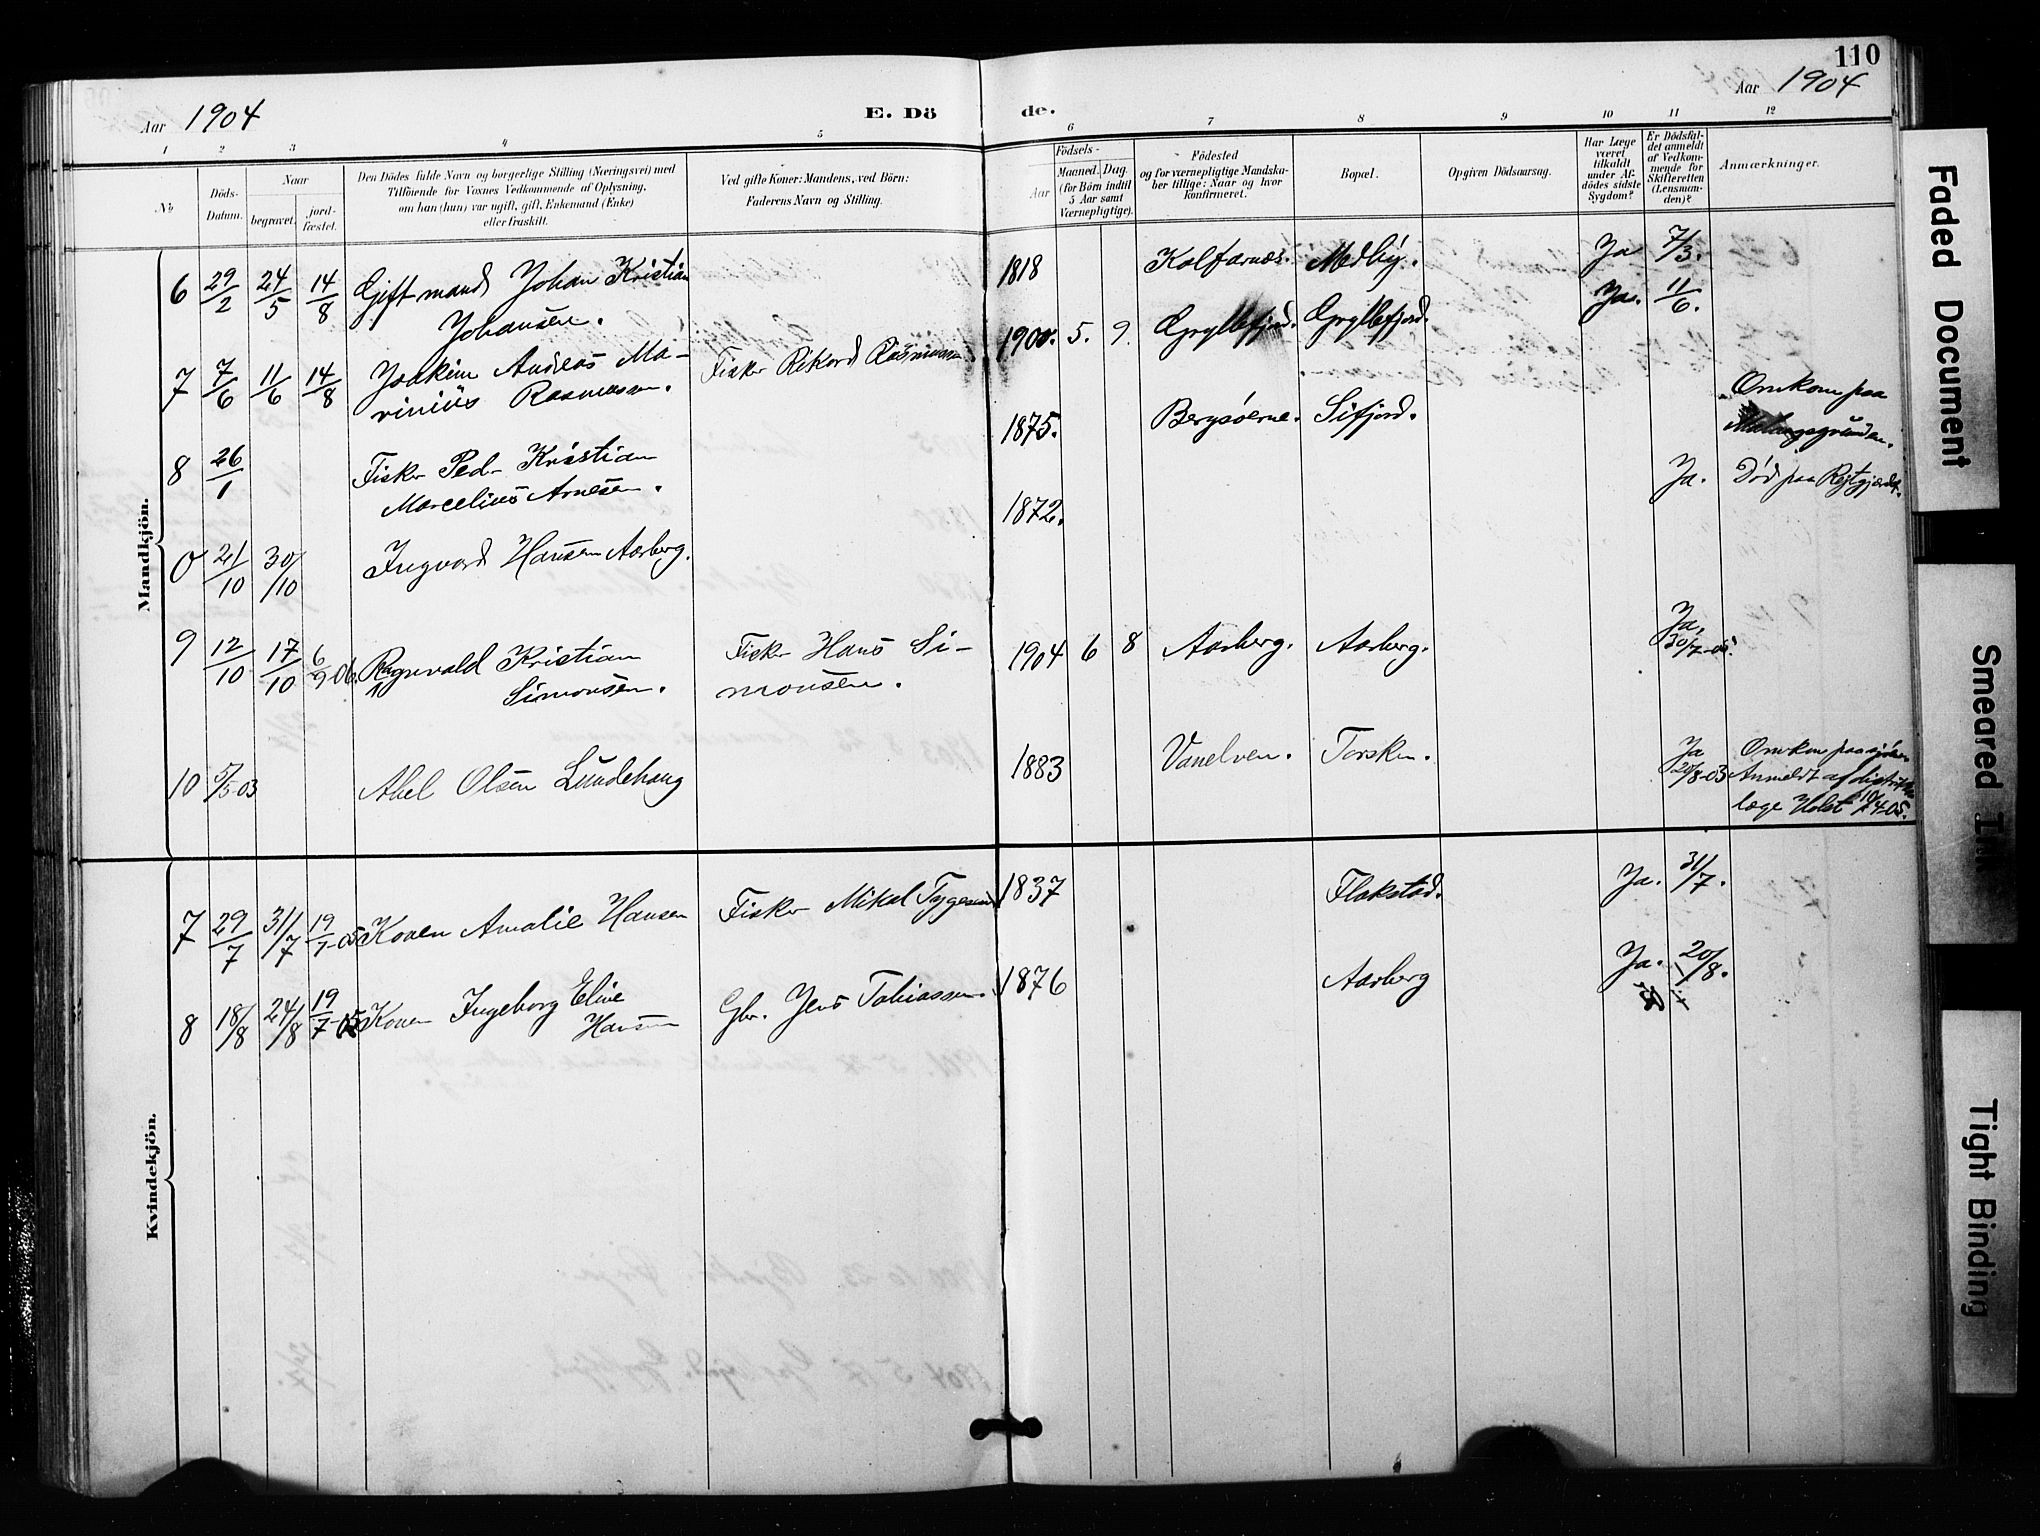 110
Aar 1904
E. Döde.
Aar 1904
1 2 3 4 5 6 7 8 9 10 11 12
№
Döds-Datum.
Naar
begravet.
jord-fæstet.
Den Dödes fulde Navn og borgerlige Stilling (Næringsvei) med
Tilföiende for Voxnes Vedkommende af Oplysning,
om han (hun) var ugift, gift, Enkemand (Enke)
eller fraskilt.
Ved gifte Koner: Mandens, ved Börn:
Faderens Navn og Stilling.
Födsels-
Aar
Maaned. Dag.
(for Börn indtil
5 Aar samt
Værnepligtige).
Födested
og for værnepligtige Mandska-
ber tillige: Naar og hvor
konfirmeret.
Bopæl.
Opgiven Dödsaarsag.
Har Læge
været
tilkaldt
under Af-
dödes sidste
Sygdom?
Er Dödsfal-
det anmeldt
af Vedkom-
mende for
Skifteretten
(Lensman-
den)?
Anmærkninger.
Mandkjön.
6 29/2 24/5 14/8 Gift mand Johan Kristian
Johansen.
1818 Kalfarnæs. Medby. Ja 7/3.
7 7/6 11/6 14/8 Joakim Andreas Ma-
rinius Rasmussen.
Fisker Rikard Rasmussen.
1900. 5. 9. Gryllefjord. Gryllefjord. Ja. 11/6.
8 26/1 Fisker Ped. Kristian
Marcelius Arnesen.
1875. Bergsöerne. Sifjord.
Omkom paa
Malangsgrunden.
0 21/10 30/10 Ingvard Hansen Aarberg.
1872. Ja. Död paa Reitgjærdet.
9 12/10 17/10 6/9 06 Ragnvald Kristian
Simonsen.
Fisker Hans Si-
monsen.
1904 6 8 Aarberg. Aarberg. Ja.
30/7-05.
10 5/5-03 Abel Olsen Lundehaug
1883 Vanelven. Torsken. Ja
20/8-03
Omkom paa sjöen
Anmeldt af distrikts
læge Holst 10/4-05.
Kvindekjön.
7 29/7 31/7 19/7-05 Konen Amalie Hansen
Fisker Mikal Tygesen
1837 Flakstad. Ja. 31/7.
8 18/8 24/8 19/7-05 Konen Ingeborg Eline
Hansen
Gbr. Jens Tobiassen.
1876 Aarberg Ja. 20/8.
Faded Document
Smeared Ink
Tight Binding